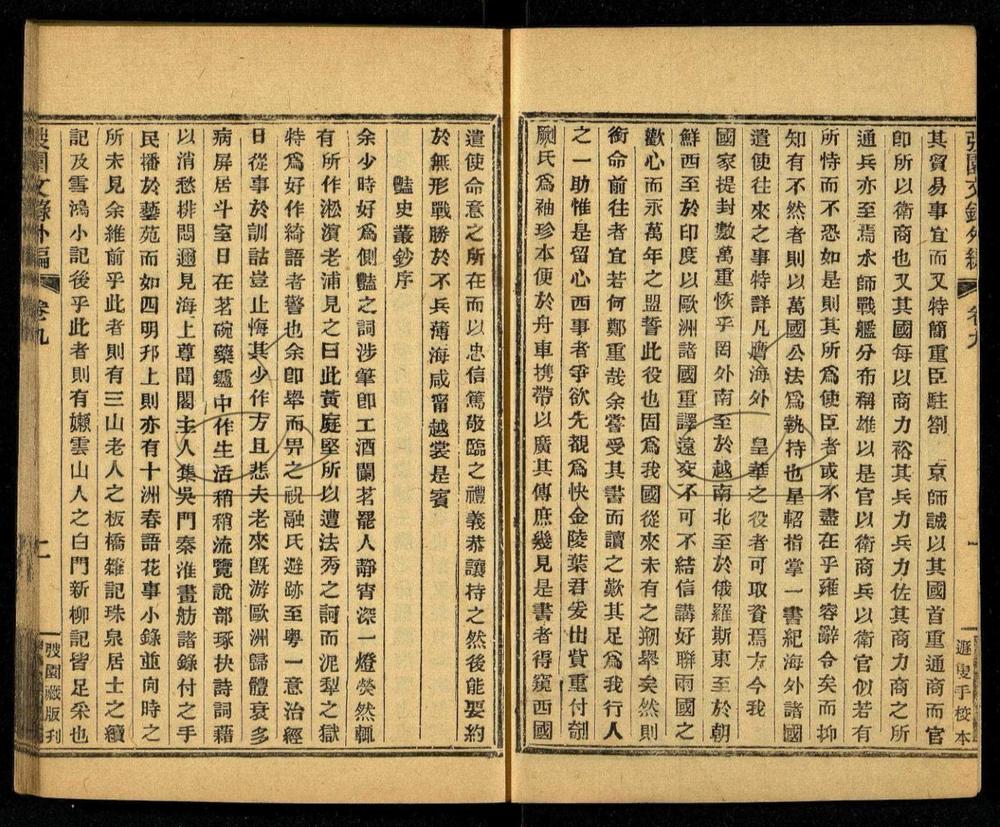 弢園文錄外編
卷九
一
遯叟手校本
其貿易事宜而又特簡重臣駐劄　京師誠以其國首重通商而官
卽所以衛商也又其國每以商力裕其兵力兵力佐其商力商之所
通兵亦至焉水師戰艦分布稱雄以是官以衛商兵以衛官似若有
所恃而不恐如是則其所爲使臣者或不盡在乎雍容辭令矣而抑
知有不然者則以萬國公法爲執持也星軺指掌一書紀海外諸國
遣使往來之事特詳凡膺海外　皇華之役者可取資焉方今我
國家提封數萬重恢乎罔外南至於越南北至於俄羅斯東至於朝
鮮西至於印度以歐洲諸國重譯遠來不可不結信講好聯兩國之
歡心而永萬年之盟誓此役也固爲我國從來未有之剏舉矣然則
銜命前往者宜若何鄭重哉余嘗受其書而讀之歎其足爲我行人
之一助惟是留心西事者爭欲先覩爲快金陵葉君爰出貲重付剞
劂氏爲袖珍本便於舟車携帶以廣其傳庶幾見是書者得窺西國
遣使命意之所在而以忠信篤敬臨之禮義恭讓持之然後能要約
於無形戰勝於不兵薄海咸甯越裳是賓
豔史叢鈔序
余少時好爲側豔之詞涉筆卽工酒闌茗罷人靜宵深一燈熒然輒
有所作淞濱老浦見之曰此黃庭堅所以遭法秀之訶而泥犁之獄
特爲好作綺語者警也余卽舉而畀之祝融氏避跡至粵一意治經
日從事於訓詁豈止悔其少作方且悲夫老來旣游歐洲歸體衰多
病屏居斗室日在茗碗藥鑪中作生活稍稍流覽說部琢抉詩詞藉
以消愁排悶邇見海上尊聞閣主人集吳門秦淮畫舫諸錄付之手
民播於藝苑而如四明邗上則亦有十洲春語花事小錄並向時之
所未見余維前乎此者則有三山老人之板橋雜記珠泉居士之續
記及雪鴻小記後乎此者則有嬾雲山人之白門新柳記皆足采也
弢園文錄外編
卷九
二
弢園藏版刊